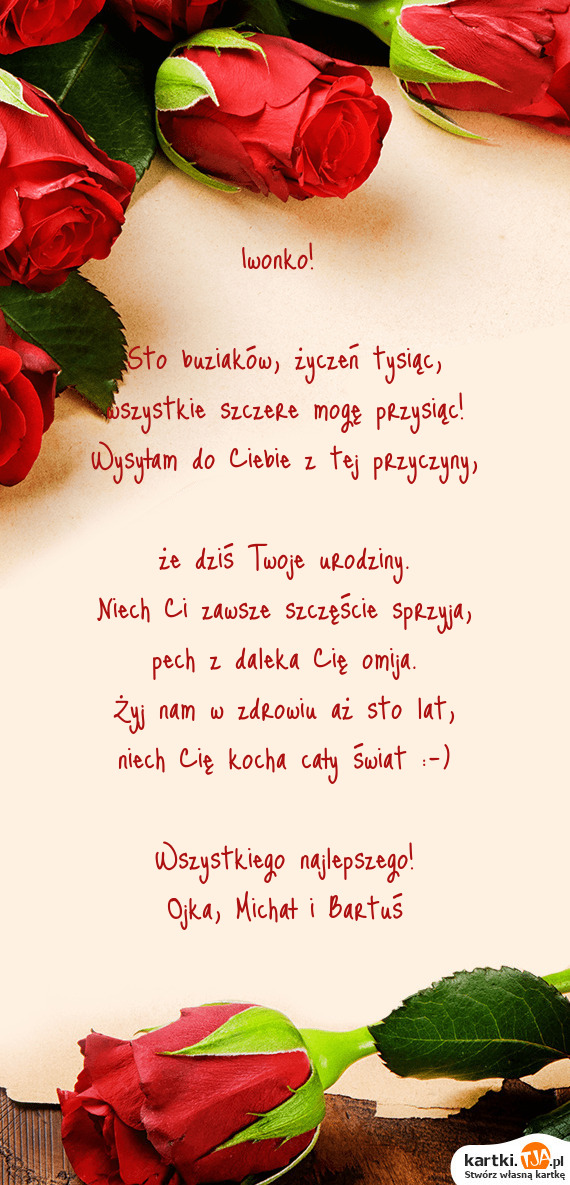 Iwonko!
Sto buziaków, życzeń tysiąc,
wszystkie szczere mogę przysiąc!
Wysyłam do Ciebie z tej przyczyny,
że dziś Twoje urodziny.
Niech Ci zawsze szczęście sprzyja,
pech z daleka Cię omija.
Żyj nam w zdrowiu aż sto lat,
niech Cię kocha cały świat :-)
Wszystkiego najlepszego!
Ojka, Michał i Bartuś
kartki.TJA.pl
Stwórz własną kartkę